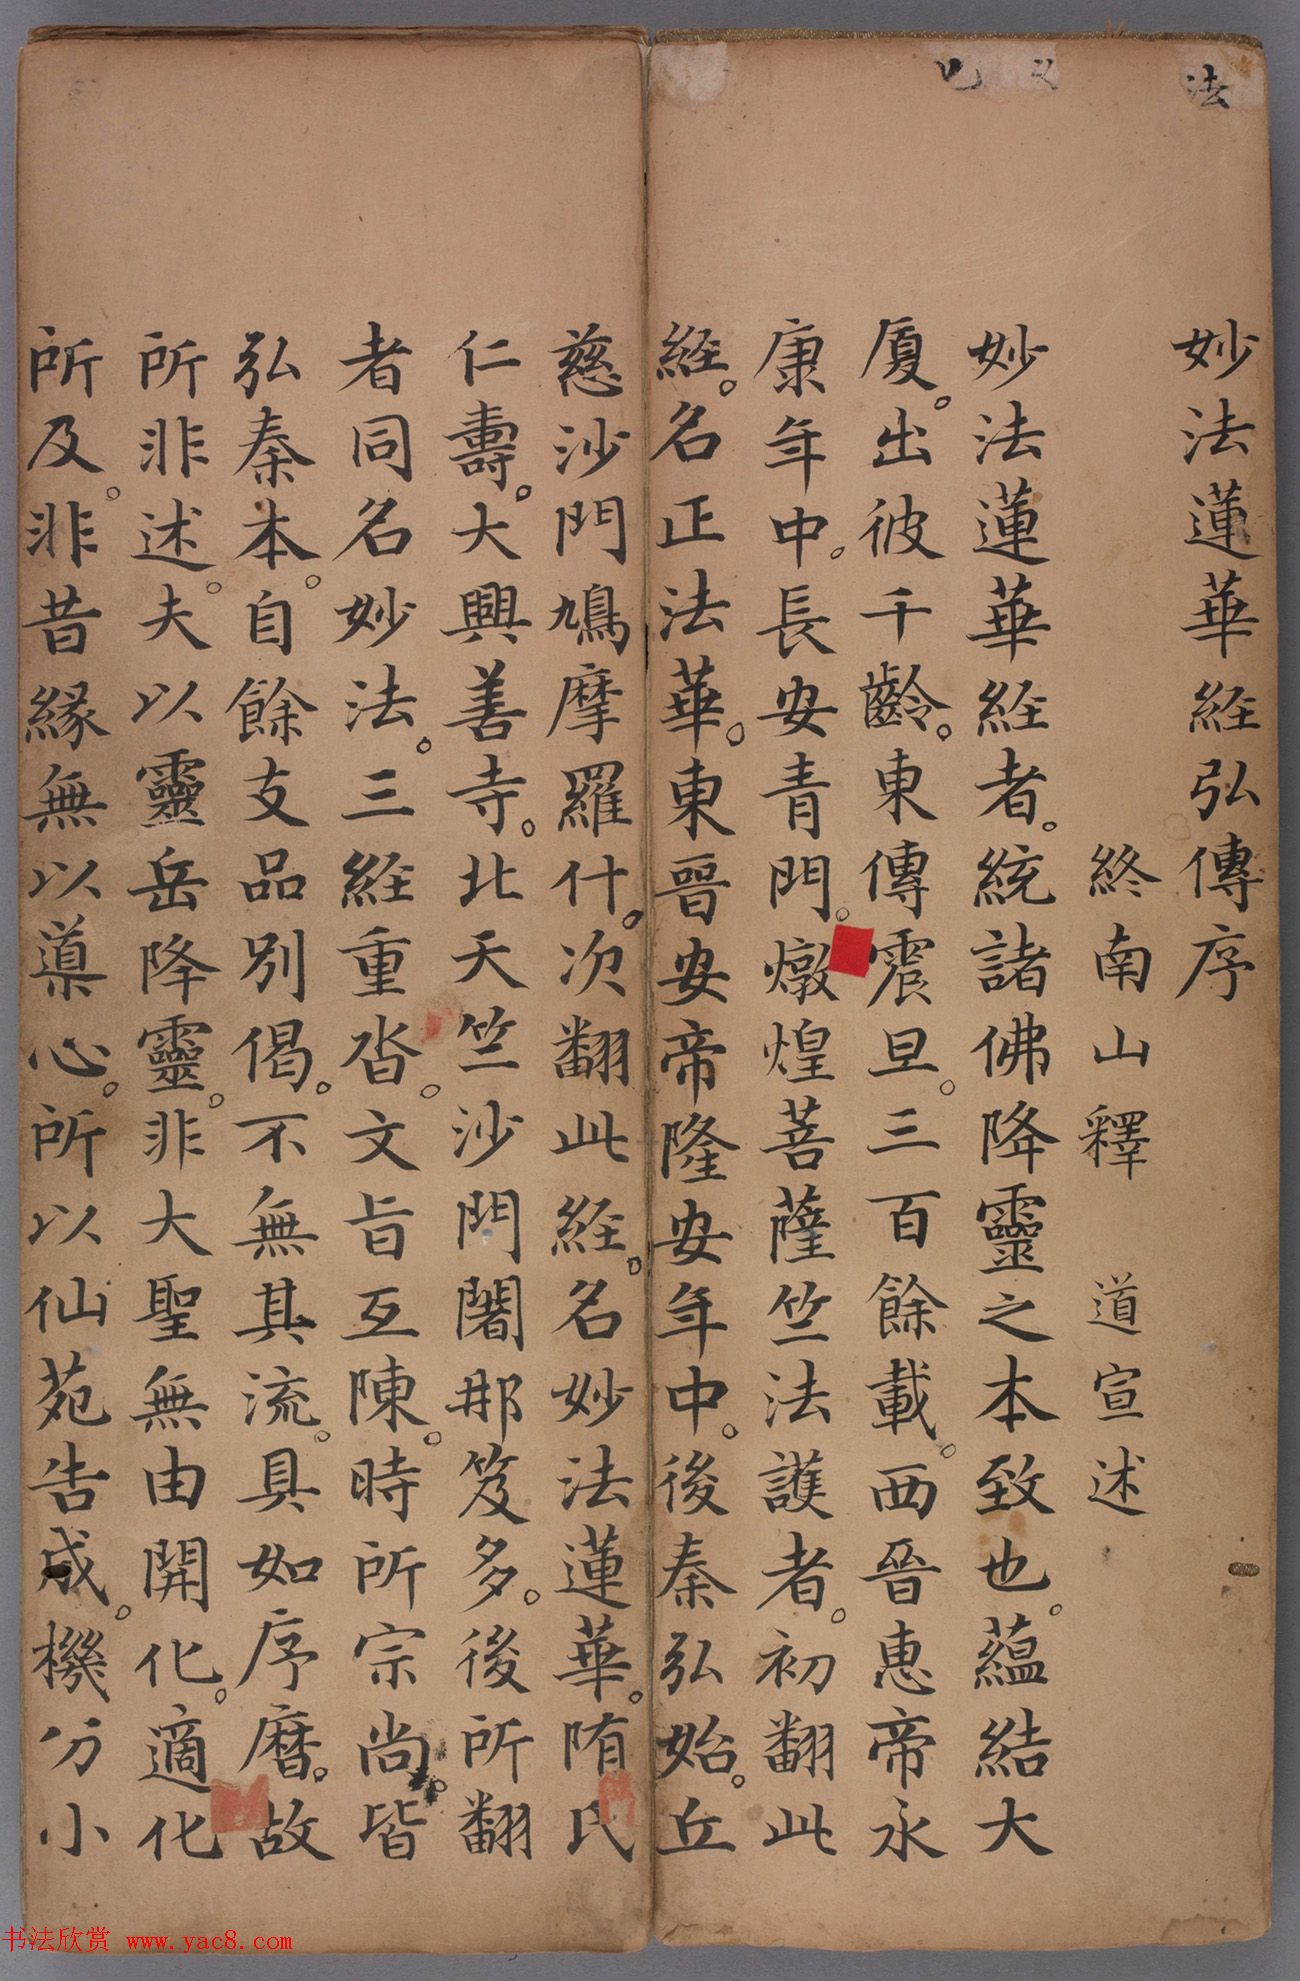 法
妙法蓮華経弘傳序
終南山釋 道宣述
妙法蓮華経者。統諸佛降靈之本致也。蘊結大
厦。出彼千齡。東傳震旦。三百餘載。西晉惠帝永
康年中。長安青門。燉煌菩薩竺法護者。初翻此
経。名正法華。東晉安帝隆安年中。後秦弘始。丘
慈沙門鳩摩羅什。次翻此経。名妙法蓮華。隋氏
仁壽。大興善寺。北天竺沙門闍那笈多。後所翻
者同名妙法。三経重沓。文旨互陳。時所宗尚。皆
弘秦本。自餘支品別偈。不無其流。具如序暦。故
所非述。夫以靈岳降靈。非大聖無由開化。適化
所及。非昔縁無以導心。所以仙苑告成。機分小
书法欣赏 www.yac8.com